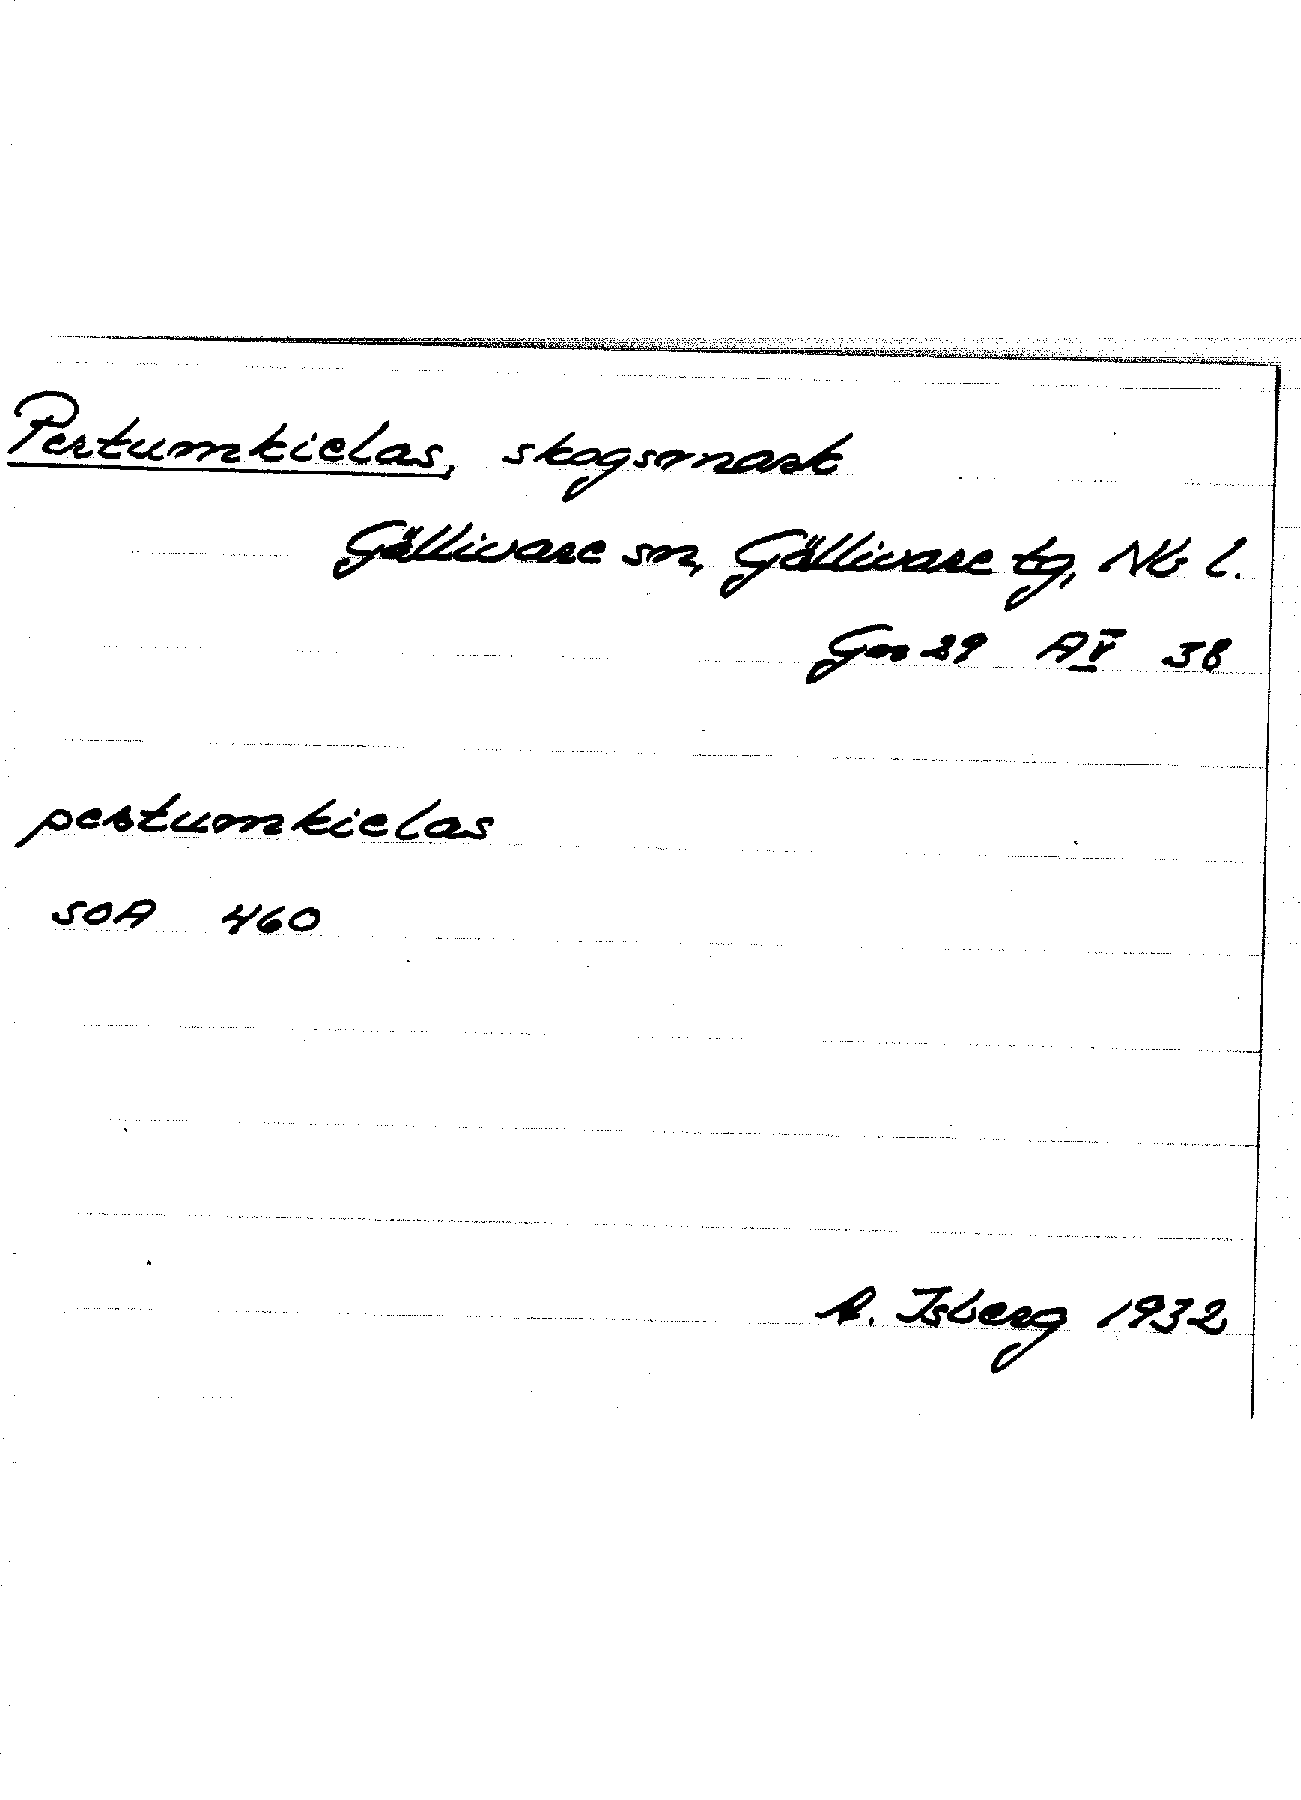 Pertumkielas, skogsmark
Gällivare sn, Gällivare tg, Nb l.
Gm 29 AV 38
pertumkielas
SOA 460
A. Isberg 1932